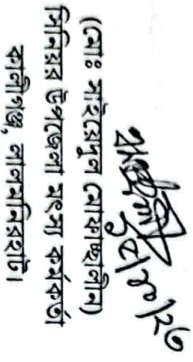 (মোঃ সাইয়েদুল মোফাচ্ছালীন)
সিনিয়র উপজেলা মৎস্য কর্মকর্তা
কালীগঞ্জ, লালমনিরহাট।